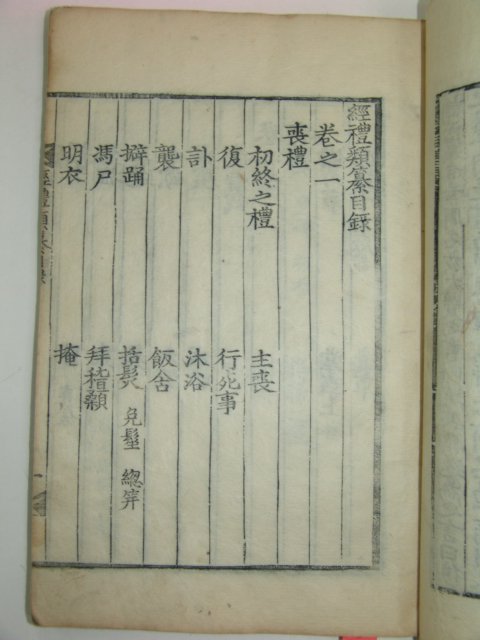 經禮類纂目録
卷之一
喪禮
初終之禮 主喪
復 行死事
訃 沐浴
襲 飯含
擗踊 括髮 免髽 緫筓
馮尸 拜稽顙
明衣 掩
經禮類纂目録